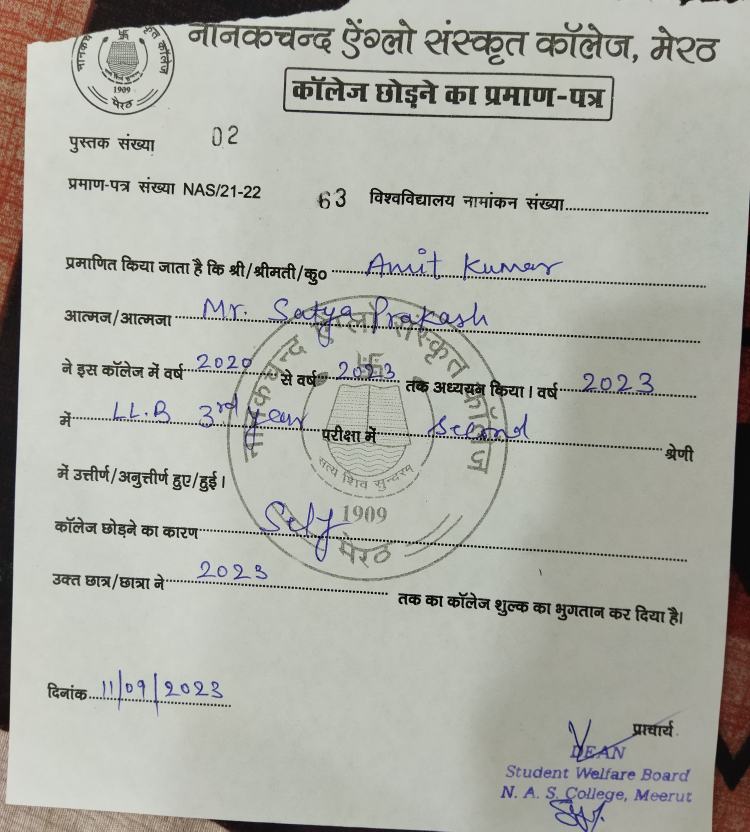 नानकचन्द ऐंग्लो संस्कृत कॉलेज, मेरठ
1909
मेरठ
कॉलेज छोड़ने का प्रमाण-पत्र
पुस्तक संख्या 02
प्रमाण-पत्र संख्या NAS/21-22 63 विश्वविद्यालय नामांकन संख्या
प्रमाणित किया जाता है कि श्री/श्रीमती/कु० Amit Kumar
आत्मज/आत्मजा Mr. Satya Prakash
ने इस कॉलेज में वर्ष 2020 से वर्ष 2023 तक अध्ययन किया। वर्ष 2023
में LL.B 3rd year परीक्षा में Second श्रेणी
में उत्तीर्ण/अनुत्तीर्ण हुए/हुई।
कॉलेज छोड़ने का कारण Self
उक्त छात्र/छात्रा ने 2023 तक का कॉलेज शुल्क का भुगतान कर दिया है।
नानकचन्द ऐंग्लो संस्कृत कॉलेज
सत्य शिव सुन्दरम
1909
मेरठ
दिनांक 11/09/2023
प्राचार्य
DEAN
Student Welfare Board
N. A. S. College, Meerut